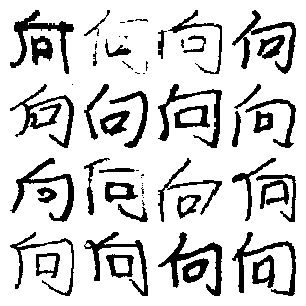 向向向向
向向向向
向向向向
向向向向